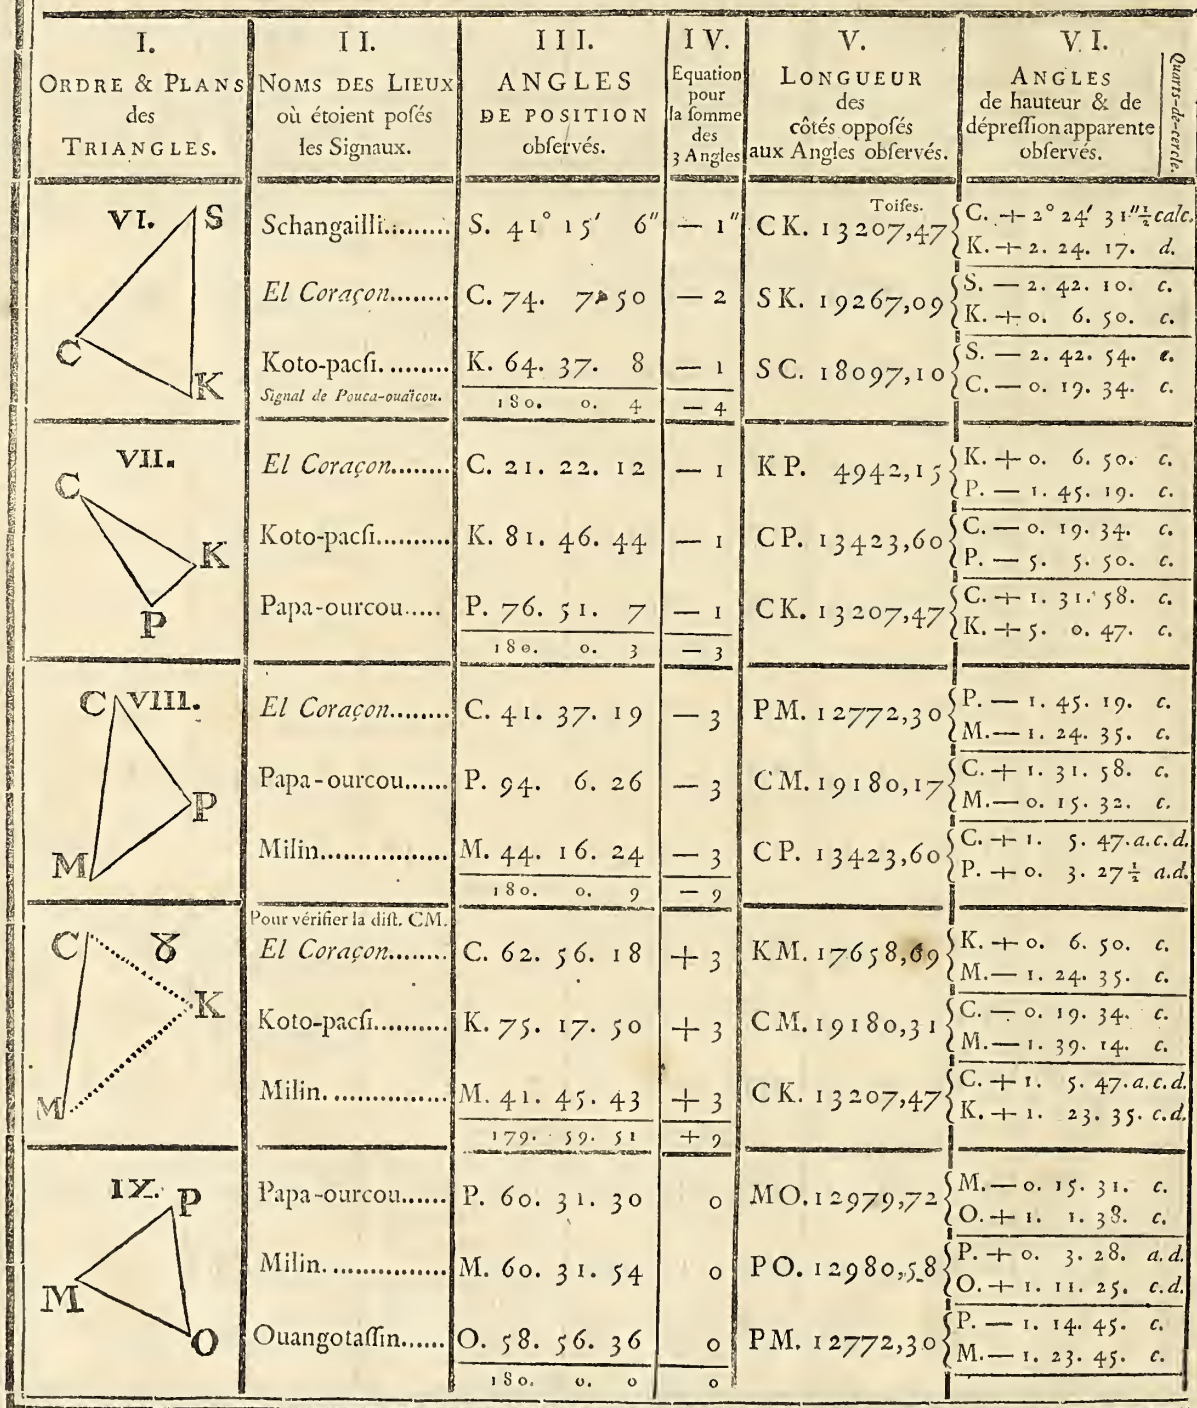 I.
ORDRE & PLANS
des
TRIANGLES.
II.
NOMS DES LIEUX
où étoient poſés
les Signaux.
III.
ANGLES
DE POSITION
obſervés.
IV.
Equation
pour
la ſomme
des
3 Angles
V.
LONGUEUR
des
côtés oppoſés
aux Angles obſervés.
VI.
ANGLES
de hauteur & de
dépreſſion apparente
obſervés.
Quarts-de-cercle.
VI. S C K
Toiſes.
Schangailli........ S. 41° 15′ 6″ — 1″ CK. 13207,47 { C. + 2° 24′ 31″½ calc.
K. + 2. 24. 17. d.
El Coraçon........ C. 74. 7. 50 — 2 SK. 19267,09 { S. — 2. 42. 10. c.
K. + 0. 6. 50. c.
Koto-pacſi......... K. 64. 37. 8 — 1 SC. 18097,10 { S. — 2. 42. 54. c.
Signal de Pouca-ouaïcou. C. — 0. 19. 34. c.
180. 0. 4 — 4
VII. C K P
El Coraçon........ C. 21. 22. 12 — 1 KP. 4942,15 { K. + 0. 6. 50. c.
P. — 1. 45. 19. c.
Koto-pacſi.......... K. 81. 46. 44 — 1 CP. 13423,60 { C. — 0. 19. 34. c.
P. — 5. 5. 50. c.
Papa-ourcou..... P. 76. 51. 7 — 1 CK. 13207,47 { C. + 1. 31. 58. c.
K. + 5. 0. 47. c.
180. 0. 3 — 3
C VIII. P M
El Coraçon........ C. 41. 37. 19 — 3 PM. 12772,30 { P. — 1. 45. 19. c.
M. — 1. 24. 35. c.
Papa-ourcou...... P. 94. 6. 26 — 3 CM. 19180,17 { C. + 1. 31. 58. c.
M. — 0. 15. 32. c.
Milin................. M. 44. 16. 24 — 3 CP. 13423,60 { C. + 1. 5. 47. a.c.d.
P. + 0. 3. 27½ a.d.
180. 0. 9 — 9
C 8 K M
Pour vérifier la diſt. CM.
El Coraçon........ C. 62. 56. 18 + 3 KM. 17658,69 { K. + 0. 6. 50. c.
M. — 1. 24. 35. c.
Koto-pacſi.......... K. 75. 17. 50 + 3 CM. 19180,31 { C. — 0. 19. 34. c.
M. — 1. 39. 14. c.
Milin. ............... M. 41. 45. 43 + 3 CK. 13207,47 { C. + 1. 5. 47. a.c.d.
K. + 1. 23. 35. c.d.
179. 59. 51 + 9
IX. P M O
Papa-ourcou...... P. 60. 31. 30 0 MO. 12979,72 { M. — 0. 15. 31. c.
O. + 1. 1. 38. c.
Milin. ............... M. 60. 31. 54 0 PO. 12980,58 { P. + 0. 3. 28. a.d.
O. + 1. 11. 25. c.d.
Ouangotaſſin...... O. 58. 56. 36 0 PM. 12772,30 { P. — 1. 14. 45. c.
M. — 1. 23. 45. c.
180. 0. 0 0